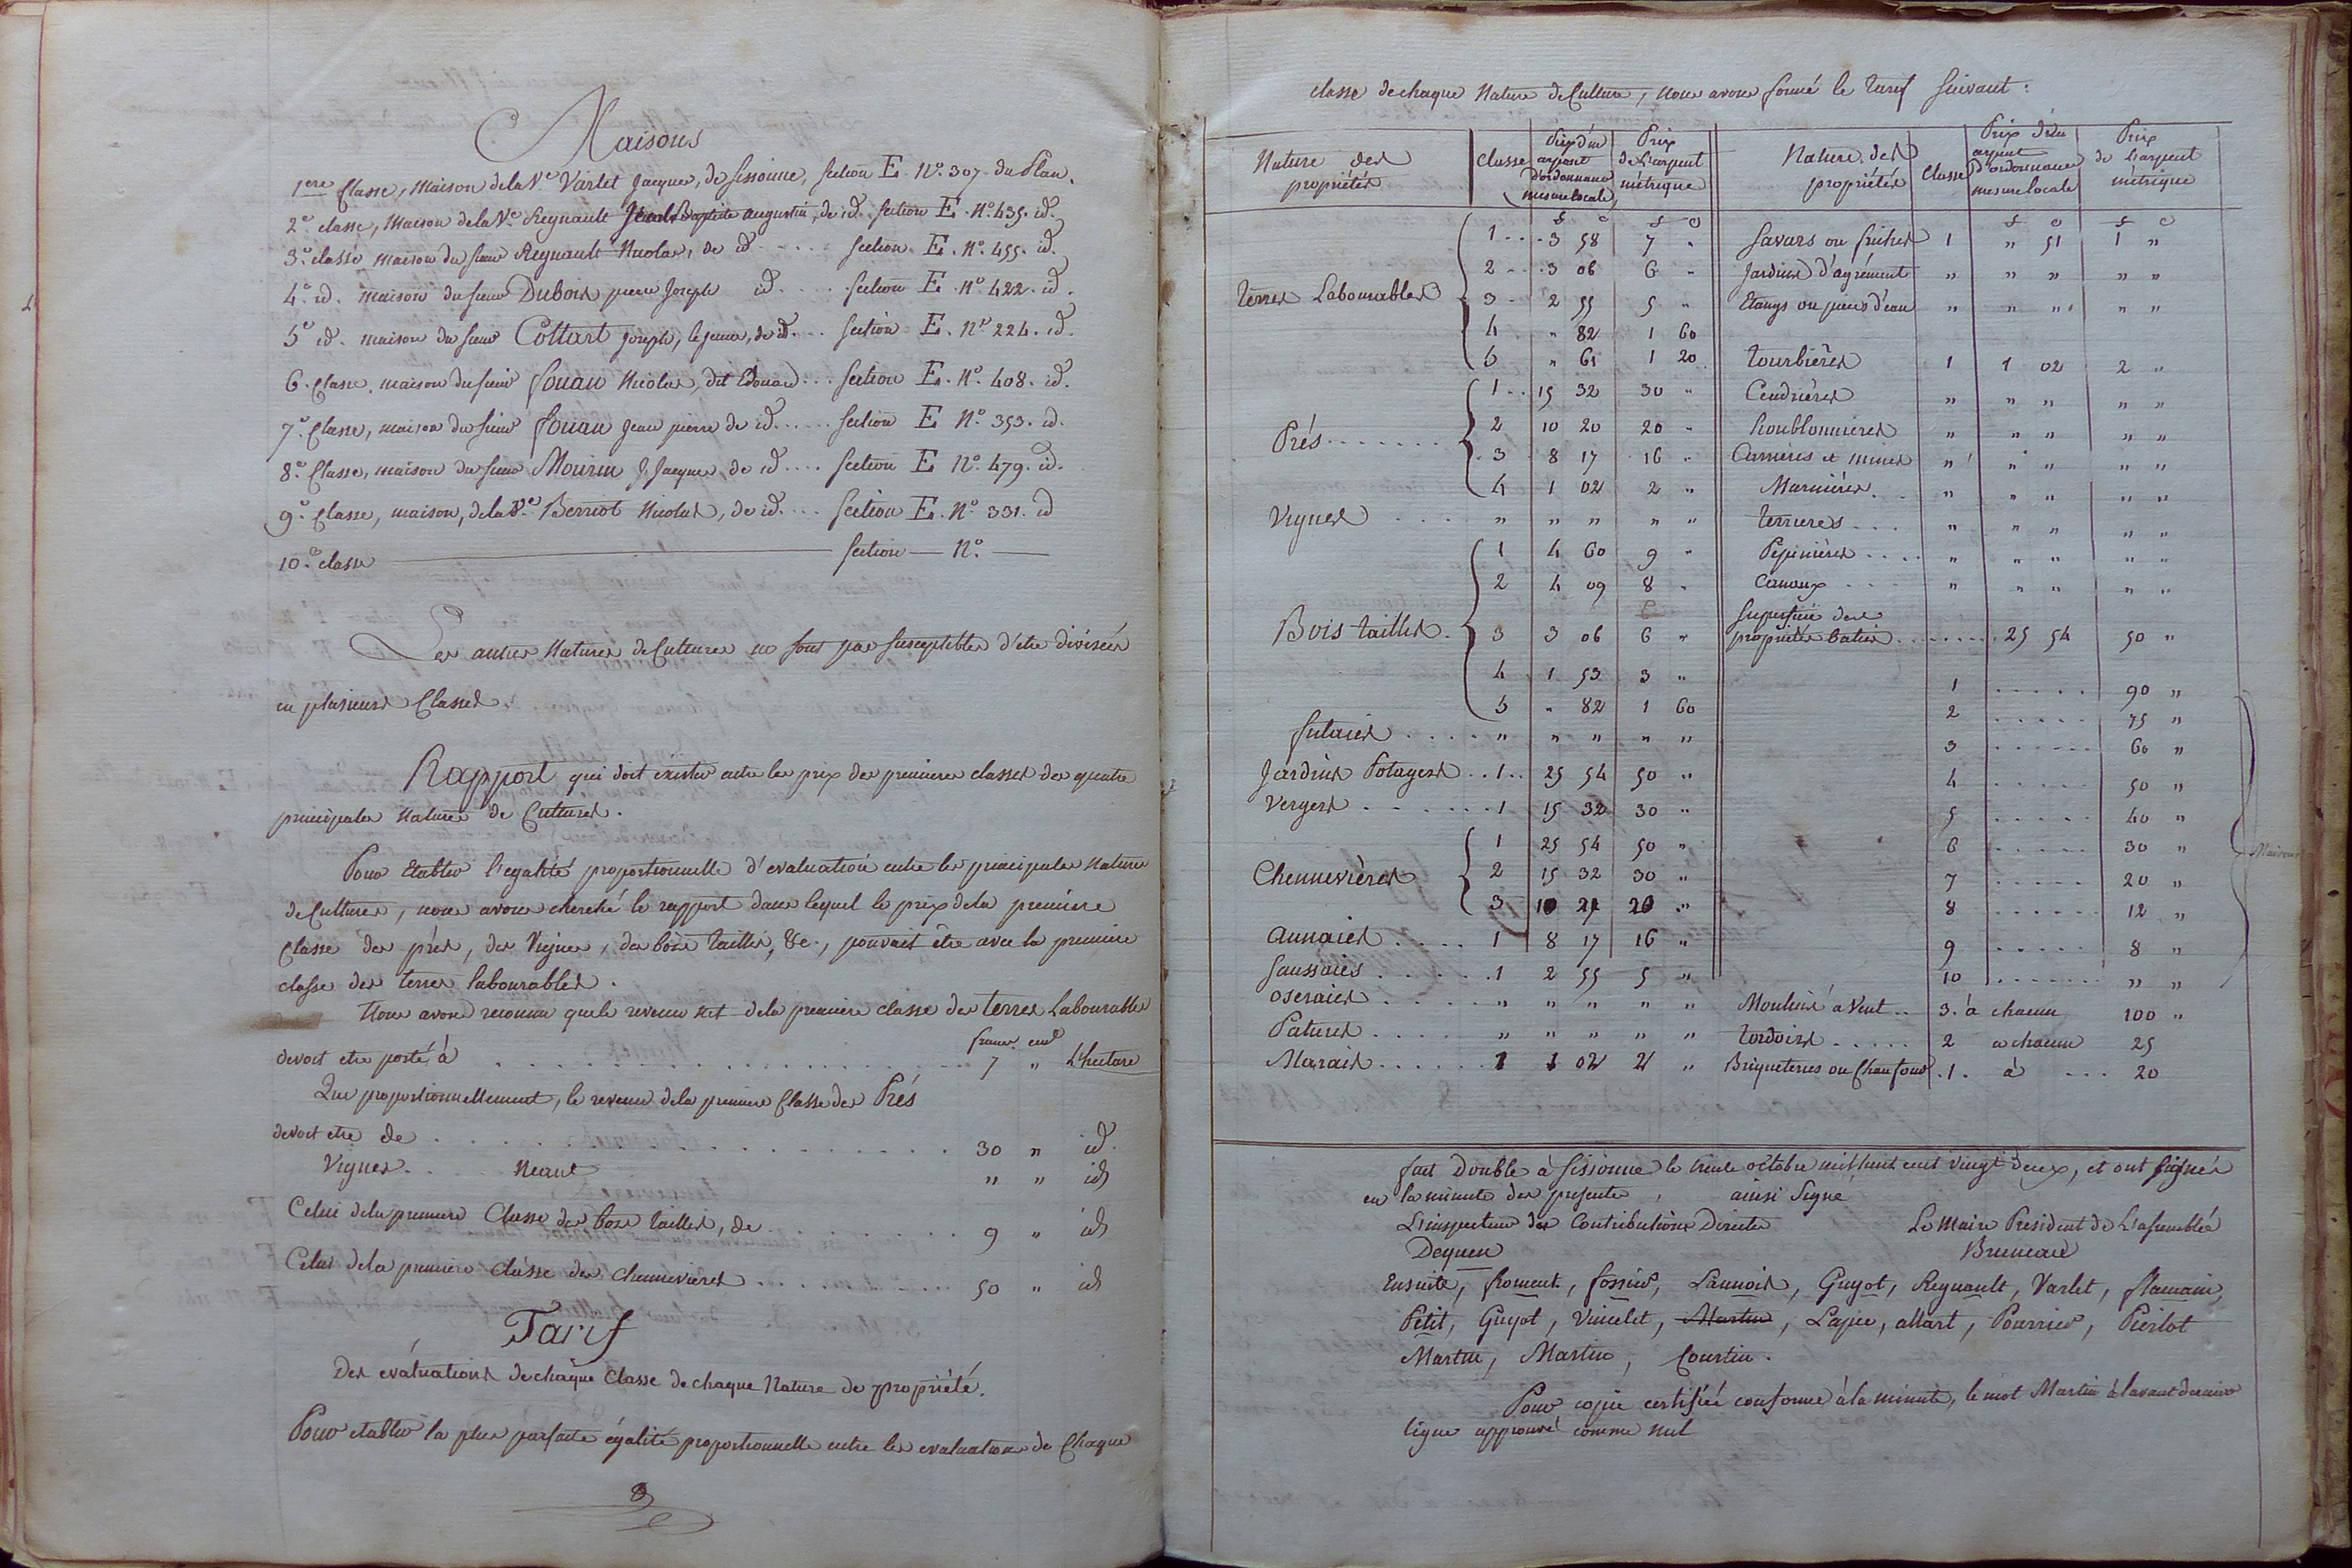 Maisons
1ere Classe, Maison de la Ve Varlet Jacques, de Sissonne, Section E. No. 307 du Plan.
2e classe, Maison de la Ve Reynault augustin, de id. Section E. No. 435. id.
3e classe maison du sieur Reynault Nicolas, de id ..... Section E. No. 455. id.
4e id. maison du sieur Dubois pierre Joseph id ..... Section E. No 422. id.
5e id. maison du sieur Cottart Joseph, le jeune, de id ... Section E. No 224. id.
6e Classe. maison du sieur fouan Nicolas, dit Edouard ... Section E. No. 408. id.
7e Classe, maison du sieur fouan Jean pierre de id ...... Section E No. 353. id.
8e Classe, maison du sieur J. Jacques, de id .... Section E No. 479. id.
9e Classe, maison, de la Ve Berriot Nicolas, de id .... Section E. No. 331. id
10e classe — Section — No. —
Les autres Natures de Cultures ne sont pas susceptibles d'etre divisées
en plusieurs Classes
Rapport qui doit exister entre les prix des premieres classes des quatre
principales Natures de Cultures.
Pour Etablir l'egalité proportionnelle d'evaluation entre les principales Nature
de Cultures, nous avons cherché le rapport dans lequel le prix de la premiere
Classe des prés, des Vignes, des bois taillis, &c., pouvait être avec la premiere
classe des terres labourables.
Nous avons reconnu que le revenu net de la premiere classe des terres Labourables
francs cent
devoit etre porté à ..... 7 " L'hectare
Que proportionnellement, le revenu de la premiere Classe des Prés
devoit etre de ..... 30 " id.
Vignes .. Neant " " id
Celui de la premiere Classe des bois taillis, de ..... 9 " id
Celui de la premiere Classe des chennevieres ..... 50 " id
Tarif
Des evaluations de chaque Classe de chaque Nature de propriété.
Pour etablir la plus parfaite égalité proportionnelle entre les evaluations de Chaque
classe de chaque Nature de Culture, nous avons formé le tarif suivant :
Nature des propriétés | Classe | Prix d'un arpent d'ordonnance mesure locale | Prix de L'arpent métrique | Nature des propriétés | Classe | Prix d'un arpent d'ordonnance mesure locale | Prix de L'arpent métrique
f c | f c | f c | f c
Terres Labourables 1 ... 3 58 7 " Savars ou friches 1 " 51 1 "
2 ... 3 06 6 " Jardins d'agrément " " " " "
3 - 2 55 5 " Etangs ou pieces d'eau " " " " "
4 " 82 1 60
5 " 61 1 20 Tourbières 1 1 02 2 "
Prés ....... 1 .. 15 32 30 " Cendrières " " " " "
2 10 20 20 " houblonnieres " " " " "
3 8 17 16 " Carrieres et mines " " " " "
4 1 02 2 " Marnières " " " " "
Vignes .... " " " " " terrieres ... " " " " "
Bois taillis. 1 4 60 9 " Pepinières .... " " " " "
2 4 09 8 " Canaux .... " " " " "
3 3 06 6 " Superficie des
propriétés baties ....... 25 54 50 "
4 1 53 3 " 1 ..... 90 "
5 " 82 1 60 2 ..... 75 "
futaies .... " " " " " 3 ..... 60 "
Jardins Potagers .. 1 .. 25 54 50 " 4 ..... 50 "
Vergers ...... 1 15 32 30 " 5 ..... 40 "
Chennevières 1 25 54 50 " 6 ..... 30 " Maisons
2 15 32 30 " 7 ..... 20 "
3 10 21 20 " 8 ..... 12 "
Aunaies .... 1 8 17 16 " 9 ..... 8 "
Saussaies ..... 1 2 55 5 " 10 ..... " "
oseraies .... " " " " " Moulins à Vent .. 3. à chacun 100 "
Patures .... " " " " " tordoirs ..... 2 a chacun 25
Marais ...... 1 1 02 2 " Briqueteries ou Chaufours . 1. à ... 20
fait Double à Sissonne le trente octobre mil huit cent vingt deux, et ont signés
en la minute des presentes, ainsi Signé
L'inspecteur des Contributions Directes Le Maire President de L'assemblée
Dequen Bruneau
Ensuite, froment, fossier, Lannois, Guyot, Reynault, Varlet, flamain,
Petit, Guyot, Vincelet, Martin, Lajie, allart, Pourrier, Pierlot
Martin, Martin, Courtin.
Pour copie certifiée conforme à la minute, le mot Martin à lavant derniere
ligne approuvé comme nul